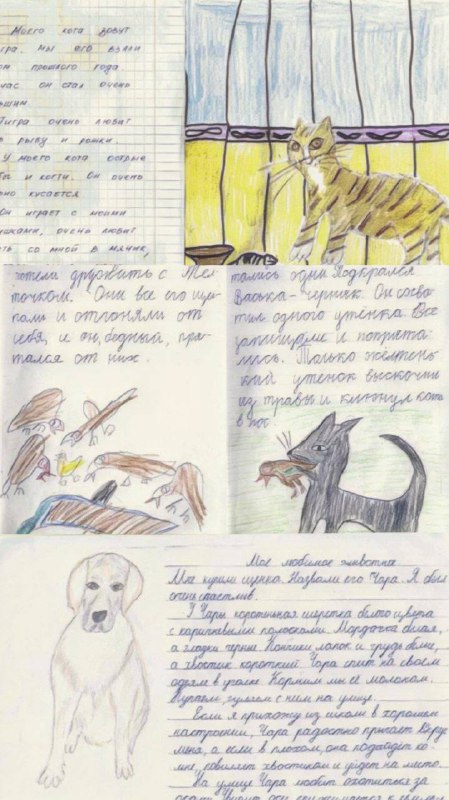 Моего кота зовут
игра. Мы его взяли
прошлого года.
час он стал очень
ьшим.
Тигра очень любит
ь рыбу и рожки.
У моего кота острые
бы и когти. Он очень
но кусается
Он играет с моими
ушками, очень любит
ть со мной в мячик,
хотели дружить с Мел
точком. Они все его щи-
пали и отгоняли от
себя, и он, бедный, пря-
тался от них.
тались одни. Подкрался
Васька-черныш. Он схва-
тил одного утенка. Все
запищали и попрята-
лись. Только желтень-
кий утенок выскочил
из травы и клюнул кота
в нос.
Мое любимое животное
Мне купили щенка. Назвали его Чара. Я был
очень счастлив.
У Чары коротенькая шерстка белого цвета
с коричневыми полосками. Мордочка белая,
а глазки черные. Кончики лапок и грудь белые,
а хвостик короткий. Чара спит на своем
одеяле в уголке. Кормим мы её молоком.
гуляем с ним на улице.
Если я прихожу из школы в хорошем
настроении, Чара радостно прыгает вокруг
меня, а если в плохом, она подойдет ко
мне, повиляет хвостиком и уйдет на место.
На улице Чара любит охотиться за